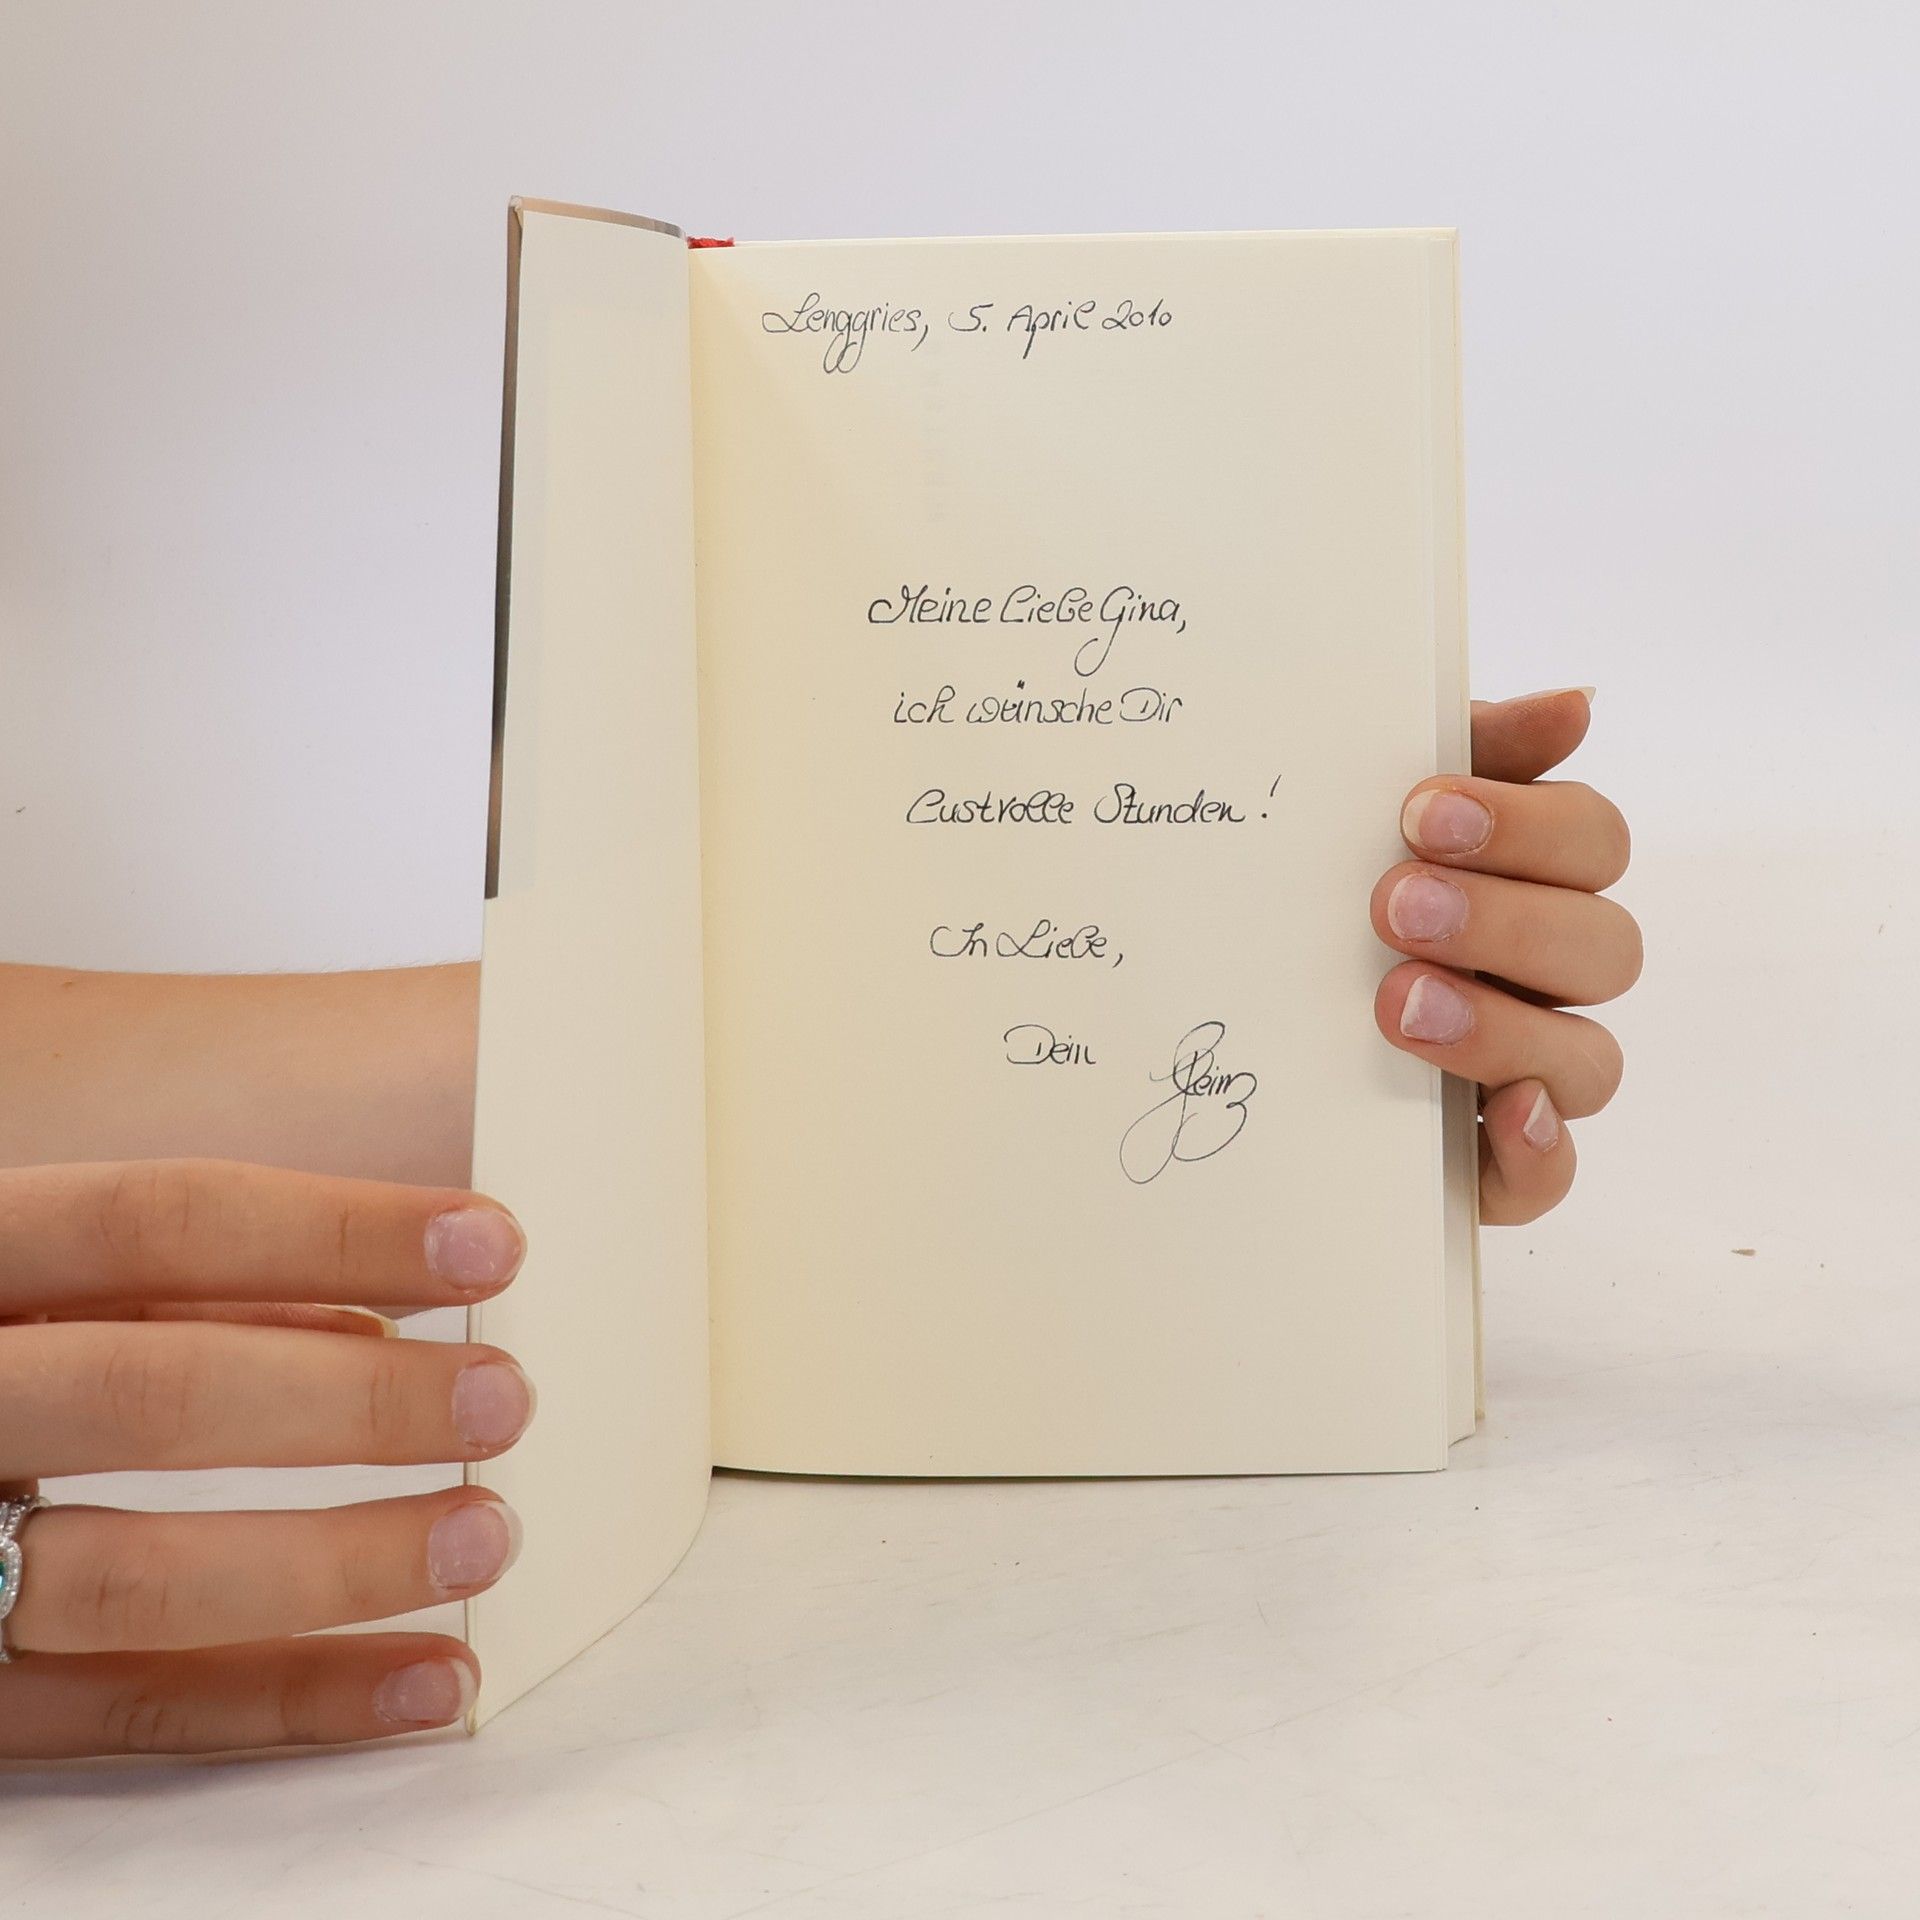 Lenggries, 5. April 2010
Meine liebe Gina,
ich wünsche Dir
lustvolle Stunden!
In Liebe,
Dein Heinz